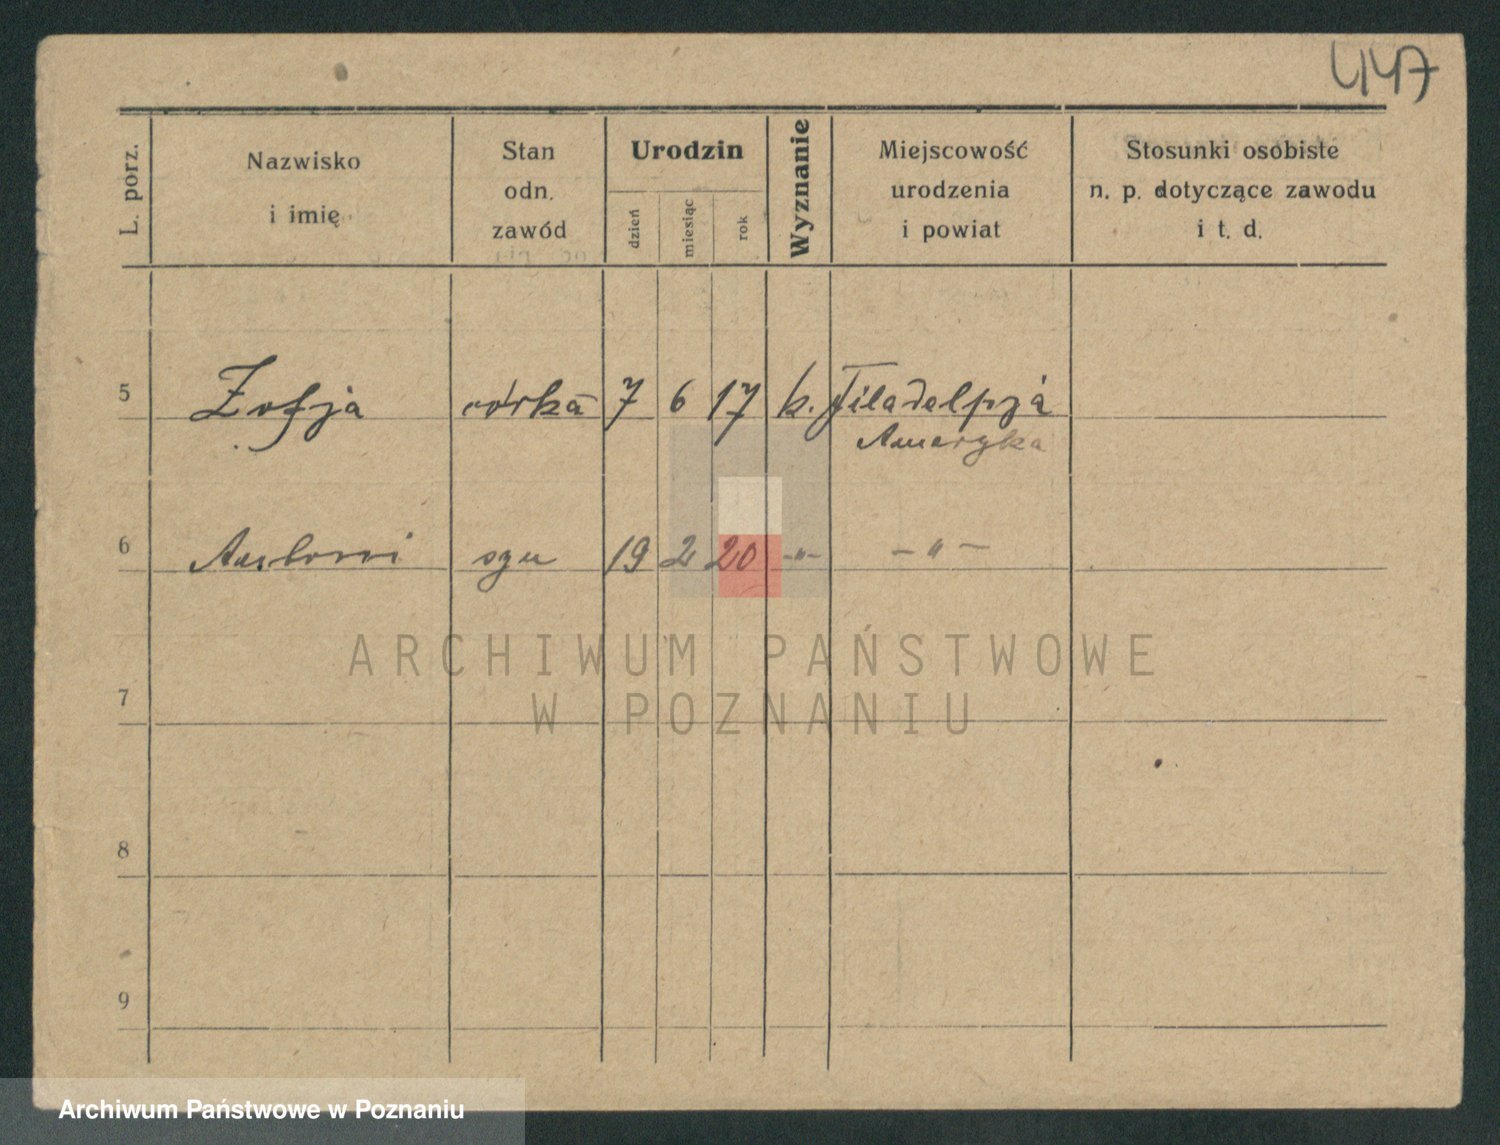 447
L. porz.
Nazwisko
i imię
Stan
odn.
zawód
Urodzin
dzień
miesiąc
rok
Wyznanie
Miejscowość
urodzenia
i powiat
Stosunki osobiste
n. p. dotyczące zawodu
i t. d.
5 Zofja córka 7 6 17 k. Filadelpja
Ameryka
6 Antoni syn 19 2 20 -"- -"-
ARCHIWUM PAŃSTWOWE
W POZNANIU
7
8
9
Archiwum Państwowe w Poznaniu